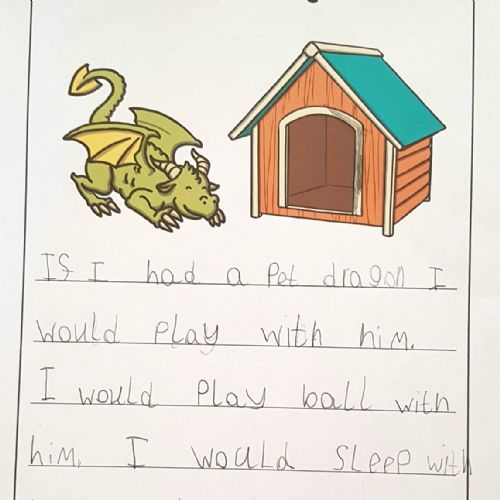 If I had a pet dragon I
would play with him.
I would play ball with
him. I would sleep with